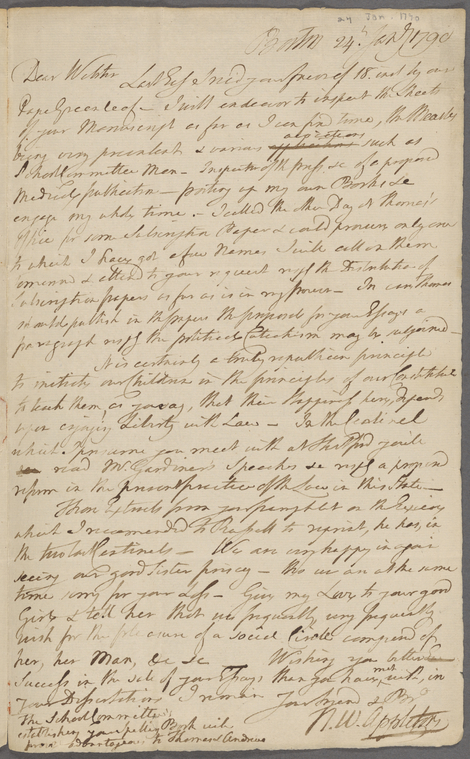 24 Jan. 1790
Boston 24th Jany 1790
Dear Webster
Last Eve I rec'd your favor of 18 inst by our
Papa Greenleaf — I will endeavor to inspect the Sheets
of your Manuscript as far as I can find time, the Measles
being very prevalent & various avocations such as
School Committee Man — Inspector of the press &c of a proposed
Medical publication — posting up my own Books &c
engage my whole time. — I called the other Day at Thomas's
Office for some Subscription Papers & could procure only one
to which I have got a few Names I will call on them
tomorrow & attend to your request resp'g the Distribution of
Subscription papers as far as is in my power — In case Thomas
should publish in the papers the proposals for your Essays a
paragraph resp'g the political Catechism may be subjoined —
It is certainly a truly republican principle
to initiate our Children in the principles of our Constitution
to teach them, as you say, that their happiness depends
upon enjoying Liberty with Law — In the Centinel
which I presume you meet with at Hartford you'll
read Mr Gardiner's Speeches &c resp'g a proposed
reform in the present practice of the Law in this State —
Those Extracts from your Pamphlet on the
which I recommended to Russell to reprint, he has, in
the two last Centinels — We are very happy in again
seeing our good Sister — tho we are at the same
time sorry for your Loss — Give my Love to your good
Girl & tell her that we frequently very frequently
wish for the pleasure of a social Circle composed of
her, her Man, &c &c Wishing you
Success in the sale of your Essays than you have met with, in
your Dissertations I remain your friend & Bror
N. W. Appleton
The School Committee
establishing your spelling Book will
prove advantageous to Thomas & Andrews